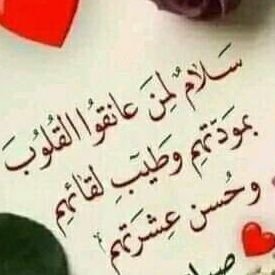 سَلَامٌ لِمَنْ عانَقُوا القُلُوبَ
بمَودّتهم وَطيبِ لقائهِم
وحُسن عِشرَتهم